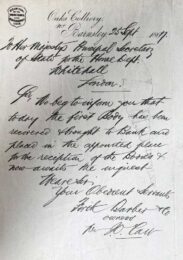 Oaks Colliery
nr Barnsley 25 Sept 1867
To Her Majestys Principal Secretary
of State for the Home Dept
Whitehall
London
Sir We beg to inform you that
today the first Body has been
recovered & brought to Bank and
placed in the appointed place
for the reception of the Bodies &
now awaits the inquest
We are Sir
Your Obedient Servants
Firth Barber & Co
owners